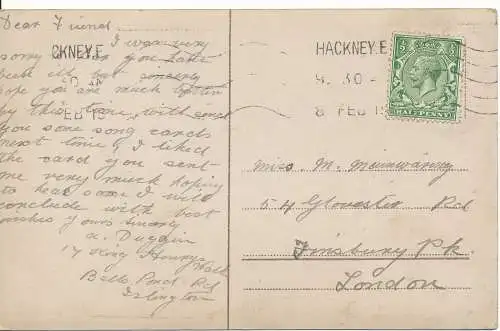 Dear Friend
I was very
sorry to hear you have
been ill but sincerly
hope you are much
by this time will send
you some song cards
next time, I liked
the card you sent
me very much hoping
to hear some I will
conclude with best
wishes yours
17 King Henry Walk
Balls Pond Rd
Islington
CKNEY.E.
HACKNEY.E
9.30
8 FEB 15
HALFPENNY
Miss. M.
54 Glovester Rd
Finsbury Pk.
London